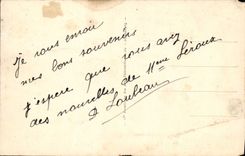 Je vous envoi
mes bons souvenirs
j'espere que vous avez
des nouvelles de Mme Leroux
D Loubeau